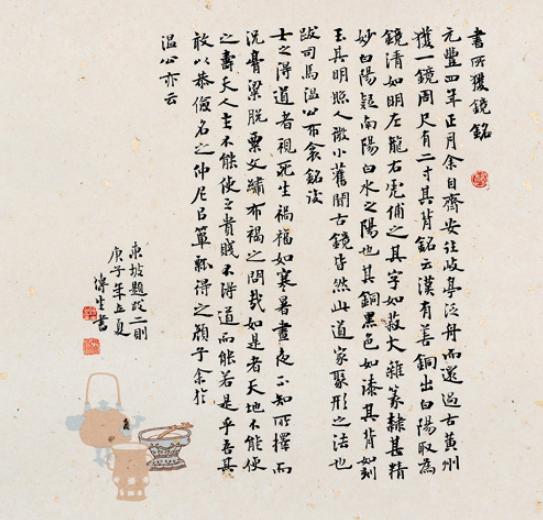 書所獲鏡銘
元豐四年正月余自齊安往岐亭泛舟而還過古黃州
獲一鏡周尺有二寸其背銘云漢有善銅出白陽取為
鏡清如明左龍右虎俌之其字如菽大雜篆隸甚精
妙白陽疑南陽白水之陽也其銅黑色如漆其背如刻
玉其明照人微小舊聞古鏡皆然此道家聚形之法也
跋司馬溫公布衾銘後
士之得道者視死生禍福如寒暑晝夜不知所擇而
況膏粱脫粟文繡布褐之間哉如是者天地不能使
之壽夭人主不能使之貴賤不得道而能若是乎吾其
敢以恭儉名之仲尼以簞瓢得之顏子余於
溫公亦云
東坡題跋二則
庚子年立夏